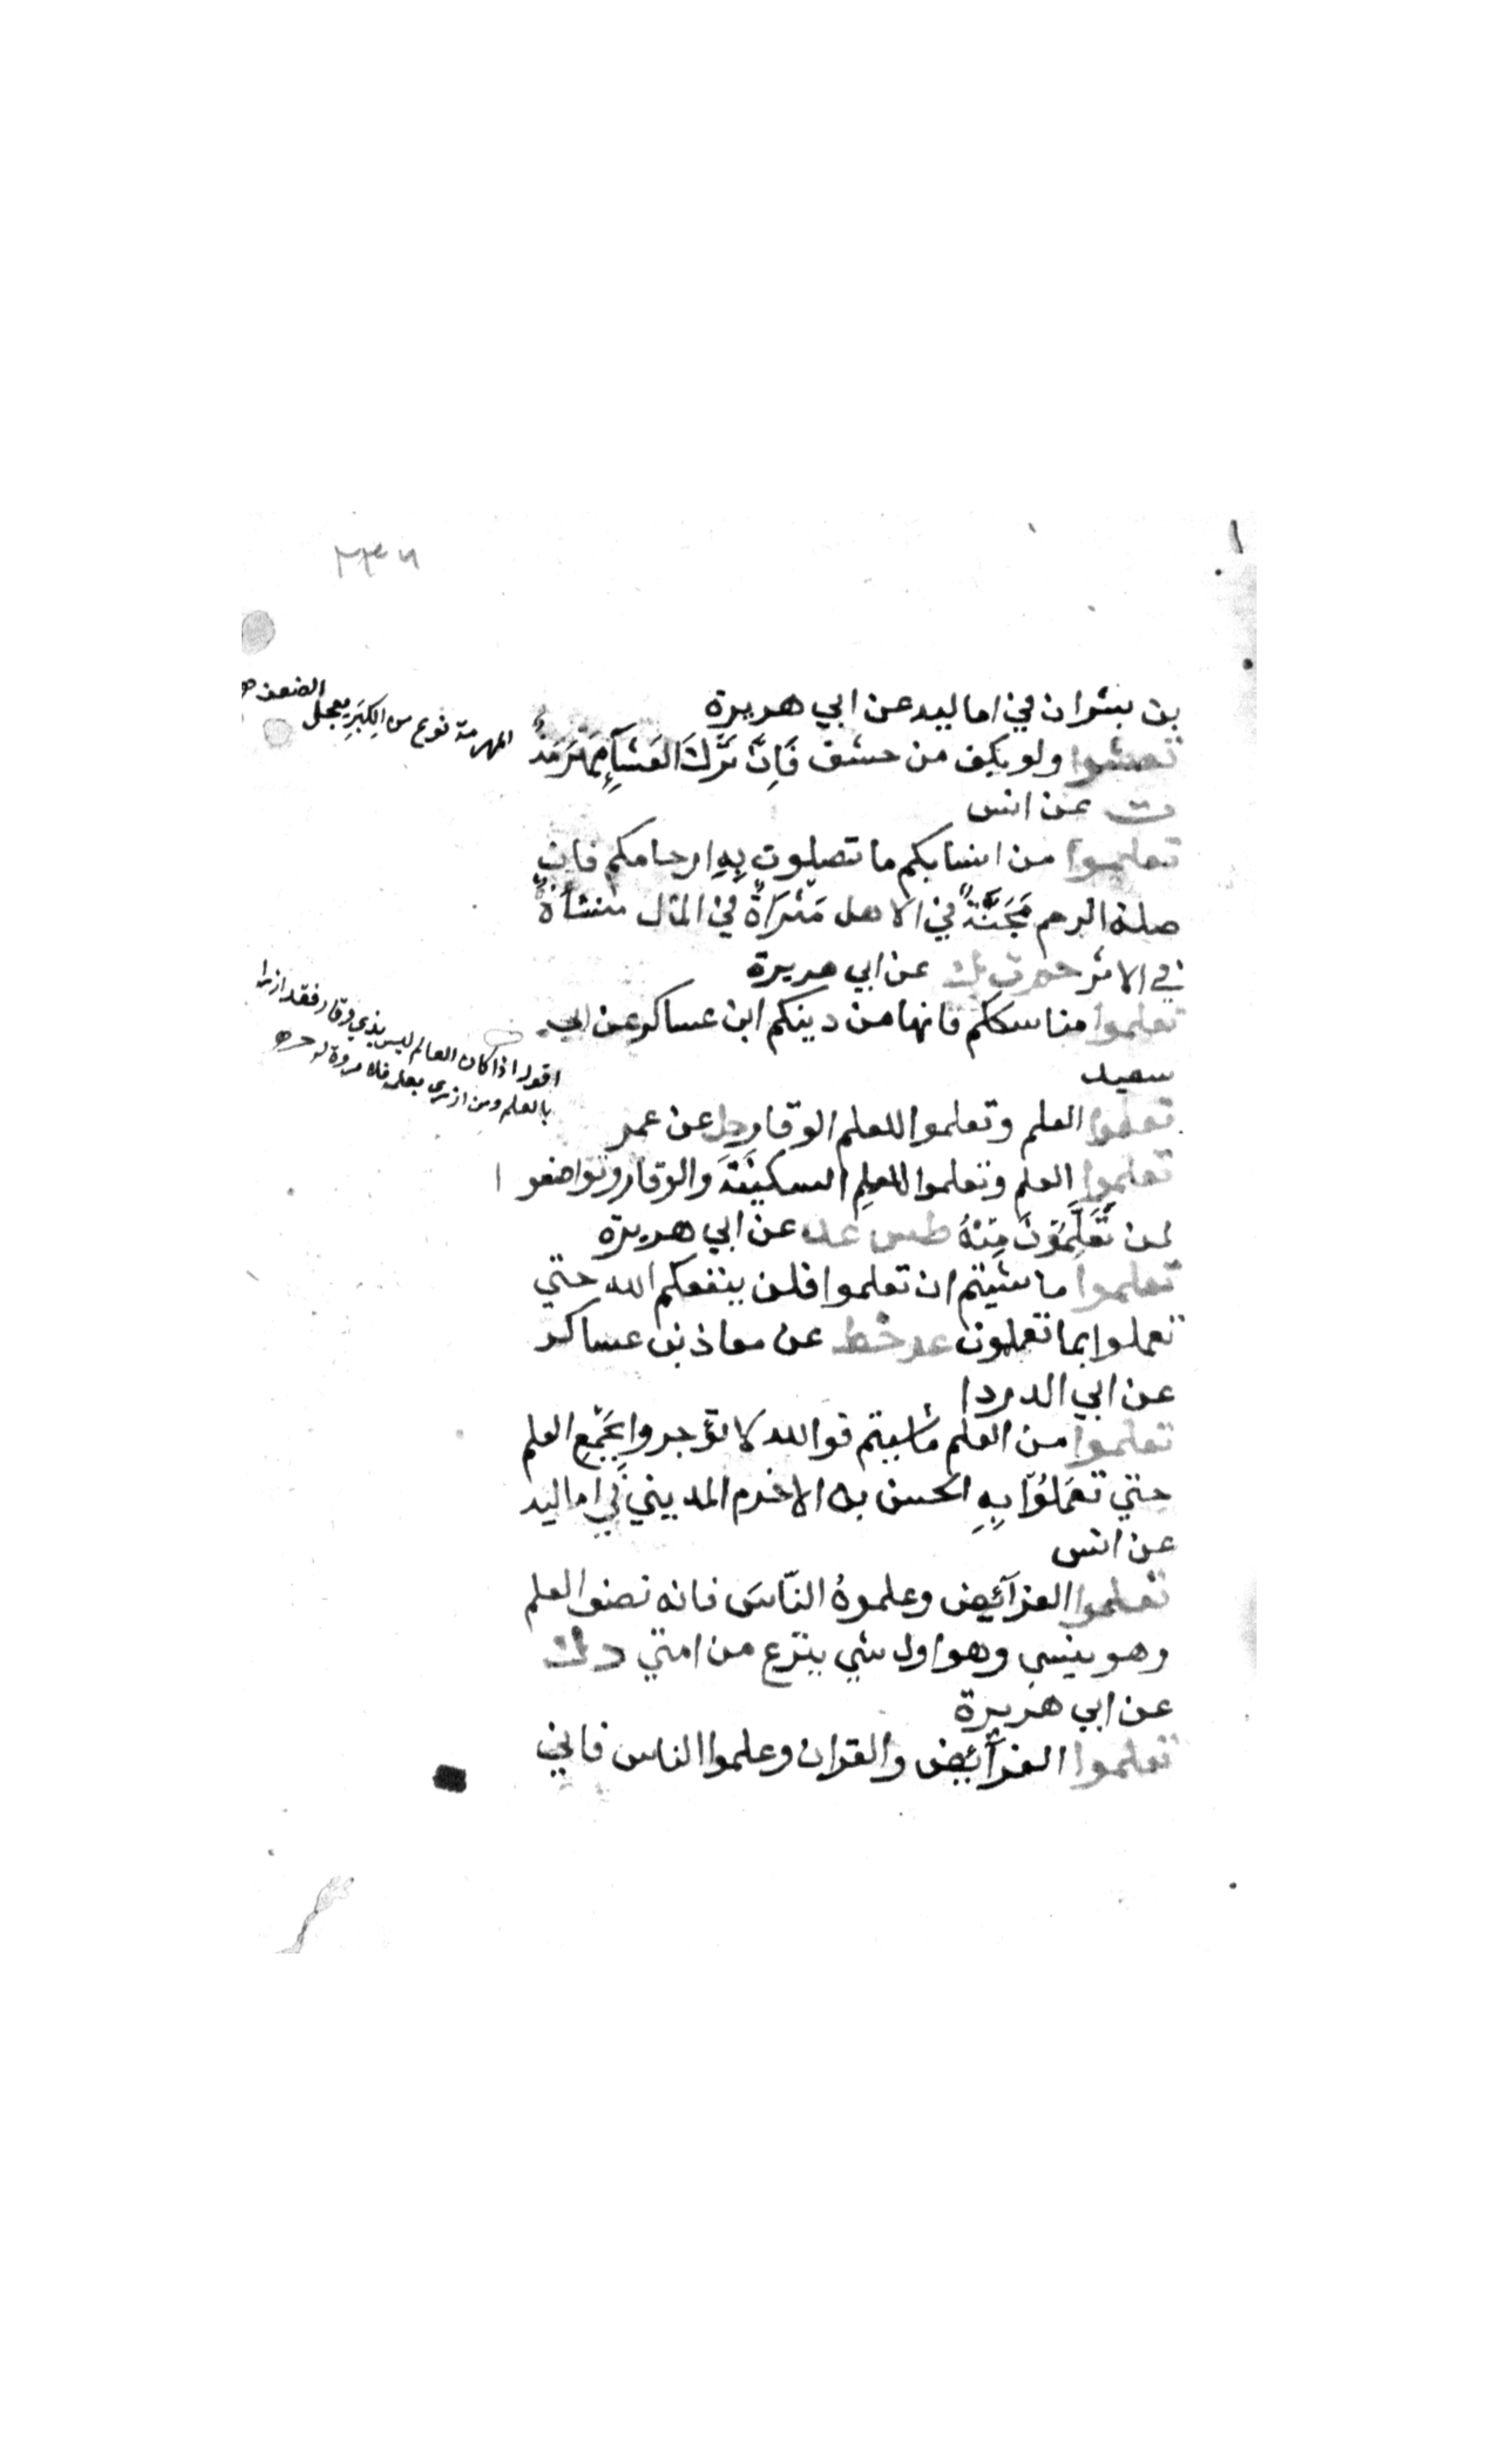 ٢٣٦
بن بشران في اماليه عن ابي هريرة
تعشوا ولو بكف من حشف فَاِنَّ تَرْكَ العَشَآءِ مَهْرَمَةٌ
ت عن انس
تعلموا من انسابكم ما تصلون بِهِ ارحامكم فان
صلة الرحم مَحَبَّةٌ في الاهل مَثْرَاةٌ في المال منسَأَةٌ
في الاثر حم ت ك عن ابي هريرة
تعلموا مناسككم فانها من دينكم ابن عساكر عن ابي
سعيد
تعلموا العلم وتعلموا للعلم الوقار حل عن عمر
تعلموا العلم وتعلموا للعلمِ السكينَةَ والوقار وتواضعوا
لمن تَعَلَّمُونَ مِنْهُ طس عد عن ابي هريرة
تعلموا ما شيتم ان تعلموا فلن ينفعكم الله حتي
تعملوا بما تعلمون عد خط عن معاذ بن عساكر
عن ابي الدردا
تعلموا من العلم ما شيتم فوالله لا تؤجروا بِجَمْعِ العلم
حتي تعمَلُوا بِهِ الحسن بن الاخرم المديني في اماليه
عن انس
تعلموا الفرآئِض وعلموهُ النّاسَ فانه نصف العلم
وهو ينسي وهو اول شي ينزع من امتي د ك
عن ابي هريرة
تعلموا الفرآئِض والقران وعلموا الناس فاني
المهرمة نوع من الكِبَرِ يعجل
الضعف
اقول اذا كان العالم ليس بذي وقار فقد ازرا
بالعلم ومن ازري بعلمه فلا مروة له